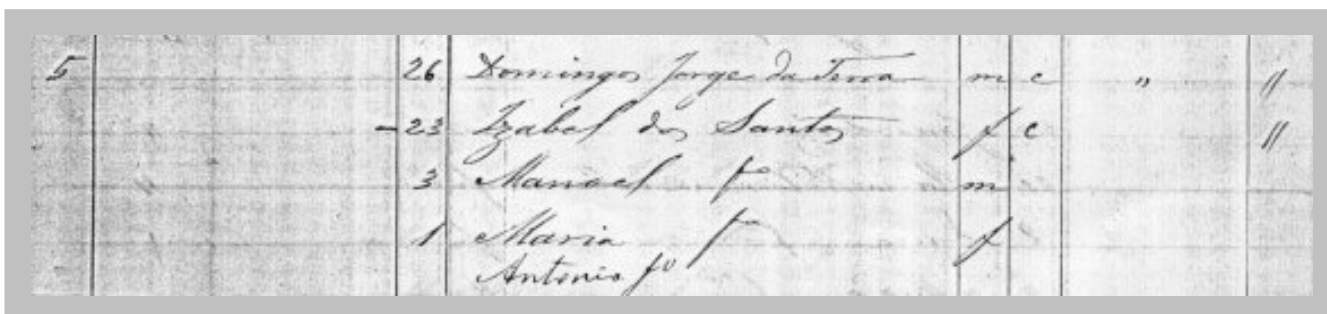 5 26 Domingos Jorge da Terra m c " "
-23 Izabel dos Santos f c "
3 Manoel fo m
1 Maria fa f
Antonio fo